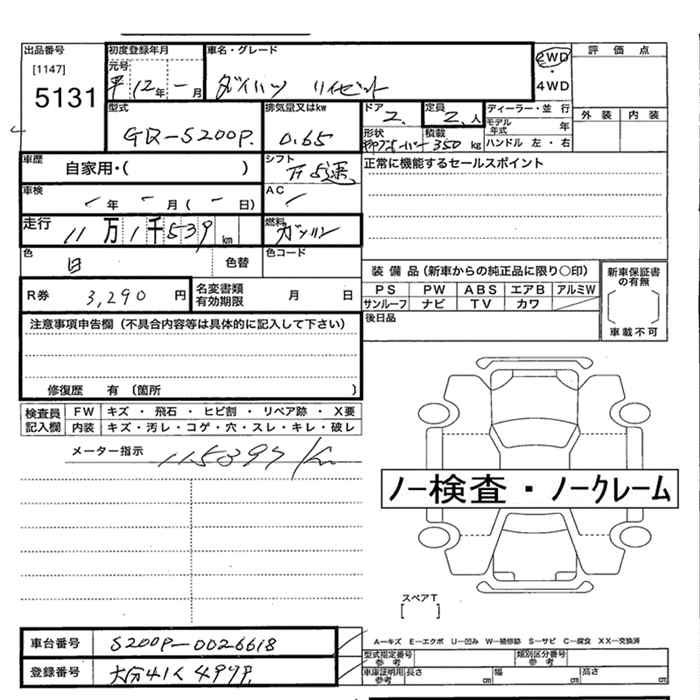 出品番号
[1147]
5131
初度登録年月
元号
平 12年 - 月
車名・グレード
ダイハツ ハイゼット
2WD
・
4WD
評価点
外装 内装
型式
GD-S200P.
排気量又はkw
0.65
ドア
2.
定員
2. 人
形状
積載
350 kg
ディーラー・並行
モデル年式 年
ハンドル 左・右
車歴
自家用・( )
シフト
F5速
正常に機能するセールスポイント
車検
- 年 - 月 ( - 日)
AC
-
走行
11万1千539km
燃料
ガソリン
色
白
色替
色コード
R券
3,290 円
名変書類
有効期限
月 日
装備品(新車からの純正品に限り○印)
PS PW ABS エアB アルミW
サンルーフ ナビ TV カワ
新車保証書
の有無
車載不可
後日品
注意事項申告欄(不具合内容等は具体的に記入して下さい)
修復歴 有 (箇所 )
検査員
記入欄
FW キズ・飛石・ヒビ割・リペア跡・X要
内装 キズ・汚レ・コゲ・穴・スレ・キレ・破レ
メーター指示
115397km
ノー検査・ノークレーム
スペアT
[ ]
車台番号
S200P-0026618
登録番号
大分41く499P.
A—キズ E—エクボ U—凹み W—補修跡 S—サビ C—腐食 XX—交換済
型式指定番号
参考
類別区分番号
参考
車庫証明用
参考
長さ cm
幅 cm
高さ cm